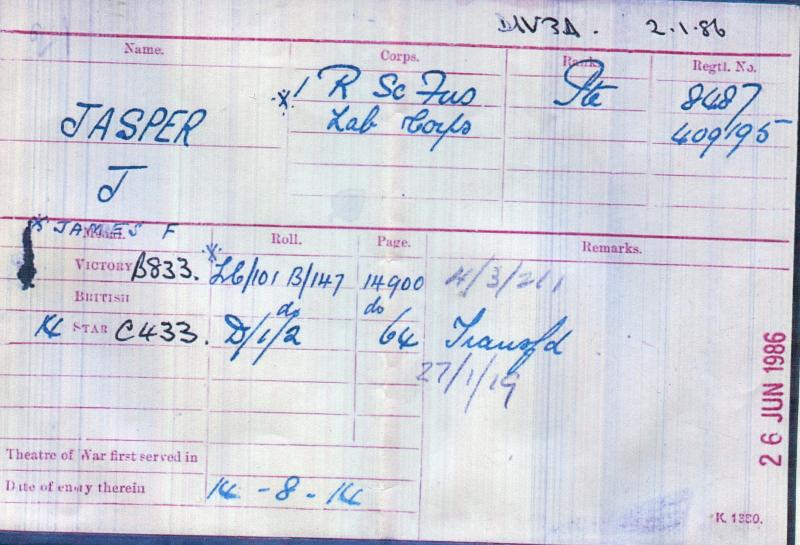 2.1.86
Name. Corps. Rank. Regtl. No.
JASPER * 1 R Sc Fus Pte 8487
Lab Corps 409195
J
* JAMES F
Medal. Roll. Page. Remarks.
VICTORY B833. * Lb/101 B/147 14900
BRITISH do do
14 STAR C433. D/1/2 64 Transfd
27/1/19
26 JUN 1986
Theatre of War first served in
Date of entry therein 14-8-14
K. 1380.